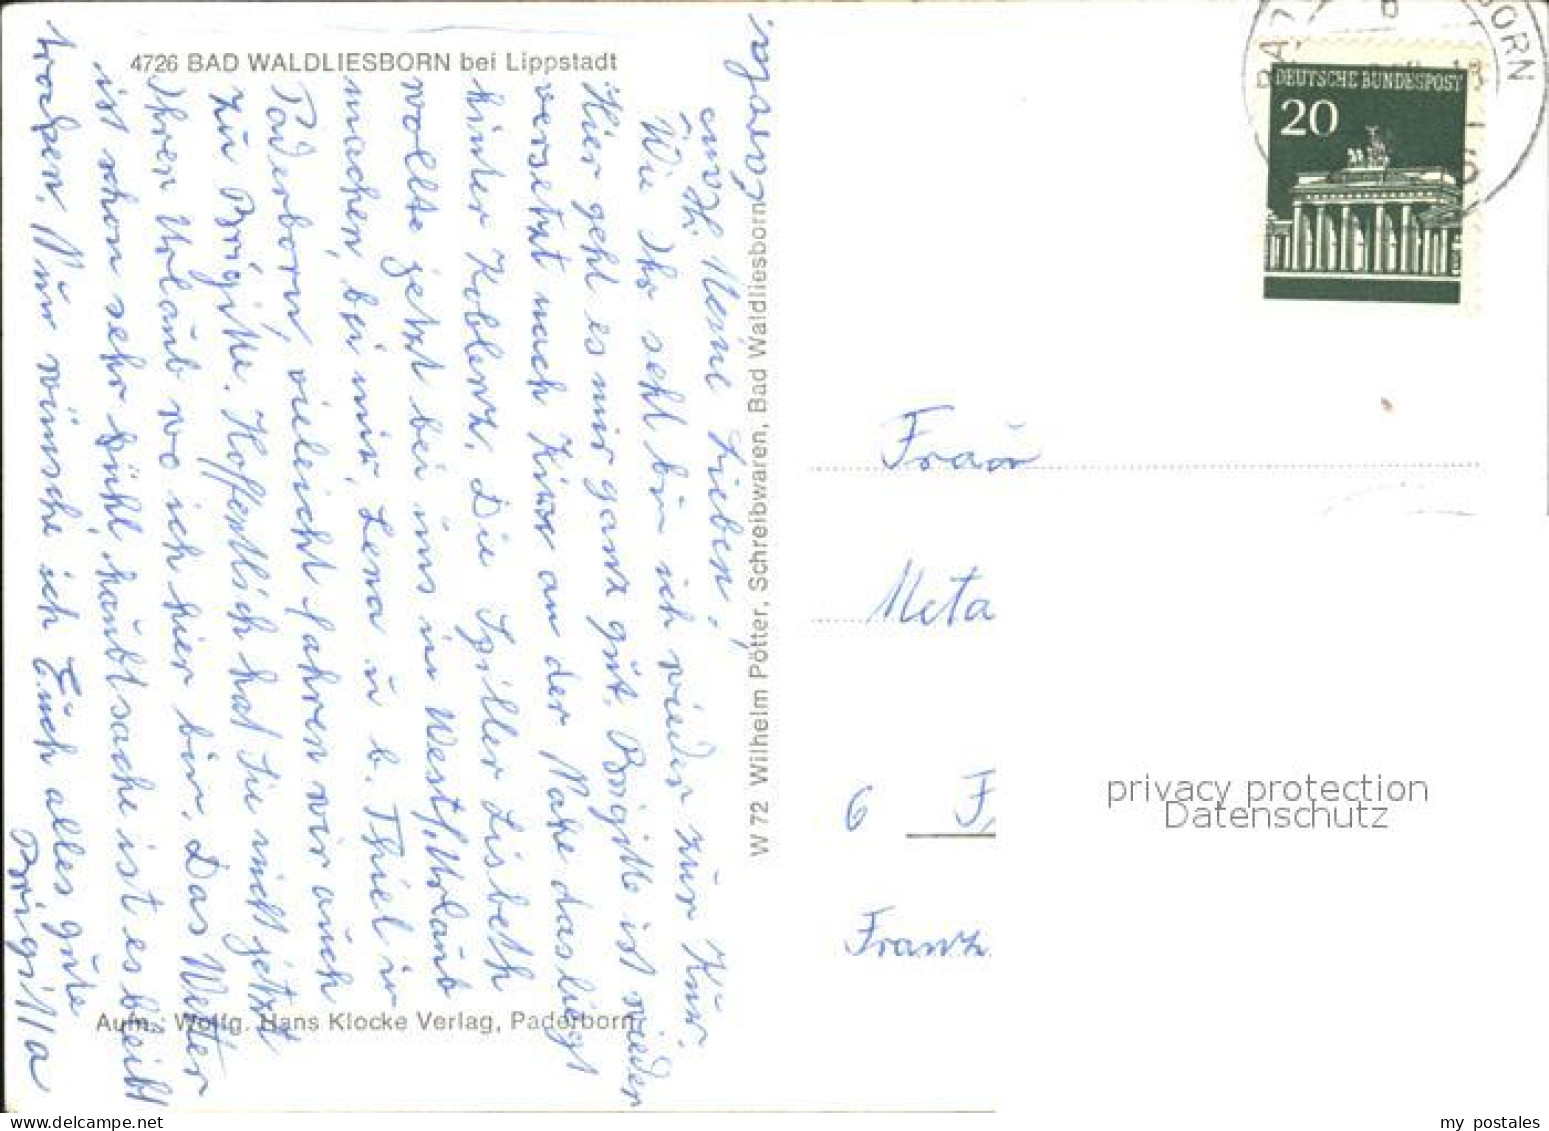 4726 BAD WALDLIESBORN bei Lippstadt
Meine Lieben!
Wie Ihr seht bin ich wieder zur Kur.
Hier geht es mir ganz gut. Brigitte ist wieder
versetzt nach Kirn an der Nahe das liegt
hinter Koblenz. Die Lisbeth
wollte jetzt bei uns in Westf. Urlaub
machen, bei mir, Lena u b. Thiel in
Paderborn, vieleicht fahren wir auch
zu Brigitte. Hoffentlich hat Sie nicht jetzt
Ihren Urlaub wo ich hier bin. Das Wetter
ist schon sehr kühl, haubtsache ist es bleibt
trocken. Nun wünsche ich Euch alles gute
W 72 Wilhelm Pötter, Schreibwaren, Bad Waldliesborn
Aufn.: Wolfg. Hans Klocke Verlag, Paderborn
DEUTSCHE BUNDESPOST
20
Frau
Meta
6 F
Franz.
privacy protection
Datenschutz
my postales